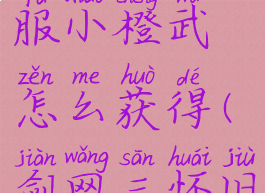 服小橙武
zěn me huò dé
怎么获得(
jiàn wǎng sān huái jiù
剑网三怀旧